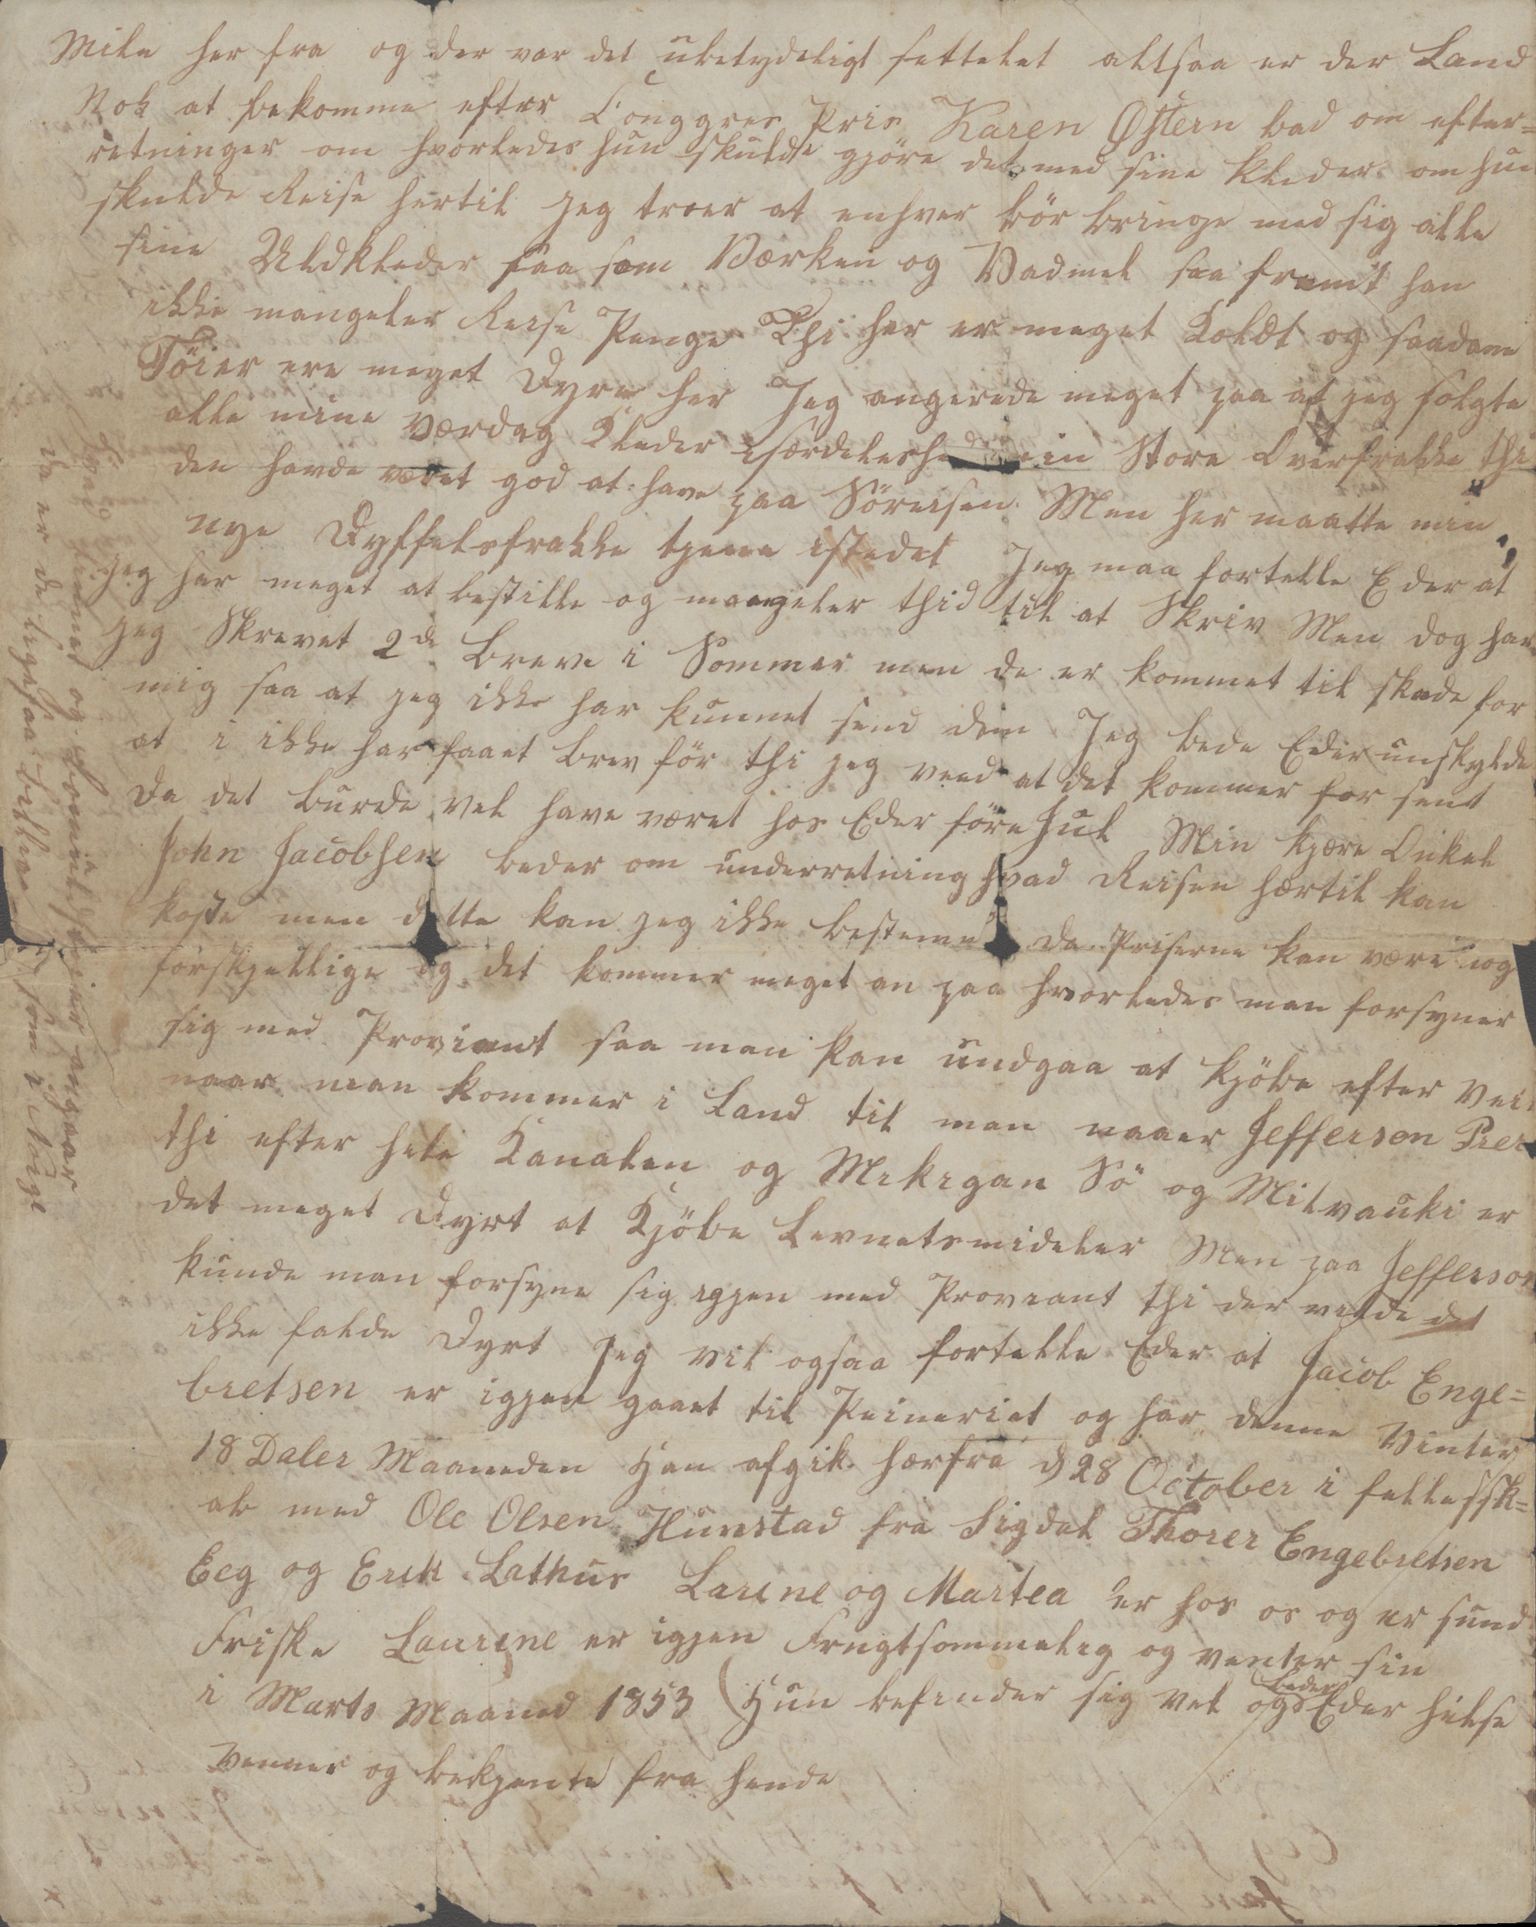 Mile her fra og der var det ubetydeligt settelet altsaa er der Land
Nok at bekomme efter Conggres Pris Karen Østern bad om efter=
retninger om hvorledes hun skulde gjöre det med sine kleder om hun
skulde Reise hertil jeg troer at enhver bör bringe med sig alle
sine Uldkleder saa som Værken og Vadmel saa fremt han
ikke mangeler Reise Penge Thi her er meget Koldt og saadane
Töier ere meget Dyre her Jeg angerede meget paa at jeg solgte
alle mine Værdag Kleder isærdeleshed min Store Overfrakke thi
den havde været god at have paa Söreisen Men her maatte min
nye Dyffelsfrakke tjene istedet Jeg maa fortelle Eder at
jeg har meget at bestille og mangeler thid til at Skriv Men dog har
jeg Skrevet 2de Breve i Sommer men de er kommet til skade for
mig saa at jeg ikke har kunnet send dem Jeg bede Eder unskylde
at i ikke har faaet Brev för thi jeg veed at det kommer for sent
da det burde vel have været hos Eder före Jul Min kjære Onkel
John Jacobsen beder om underretning hvad Reisen hærtil kan
koste men dette kan jeg ikke bestemme da Priserne kan være
forskjellige og det kommer meget an paa hvorledes man forsyner
sig med Proviant saa man kan undgaa at kjöbe efter Vei
naar man kommer i Land til man naaer Jefferson Prer
thi efter hele Kanalen og Mikigan Sö og Milvauki er
det meget Dyrt at Kjöbe Levnetsmideler Men paa Jefferson
kunde man forsyne sig igjen med Proviant thi der vilde det
ikke falde Dyrt Jeg vil ogsaa fortelle Eder at Jacob Enge=
bretsen er igjen gaaet til Peineriet og har denne Vinter
18 Daler Maaneden Han afgik hærfra d 28 October i fellessk=
ab med Ole Olsen Hunstad fra Sigdal Thorer Engebretsen
Eeg og Erik Lathus Larine og Martea er hos os og er sund
Friske Laurine er igjen Frugtsommelig og venter sin
i Marts Maaned 1853 Hun befinder sig vel og beder Eder hilse
Venner og bekjente fra hende
da er de ligesaa billige som i Norge